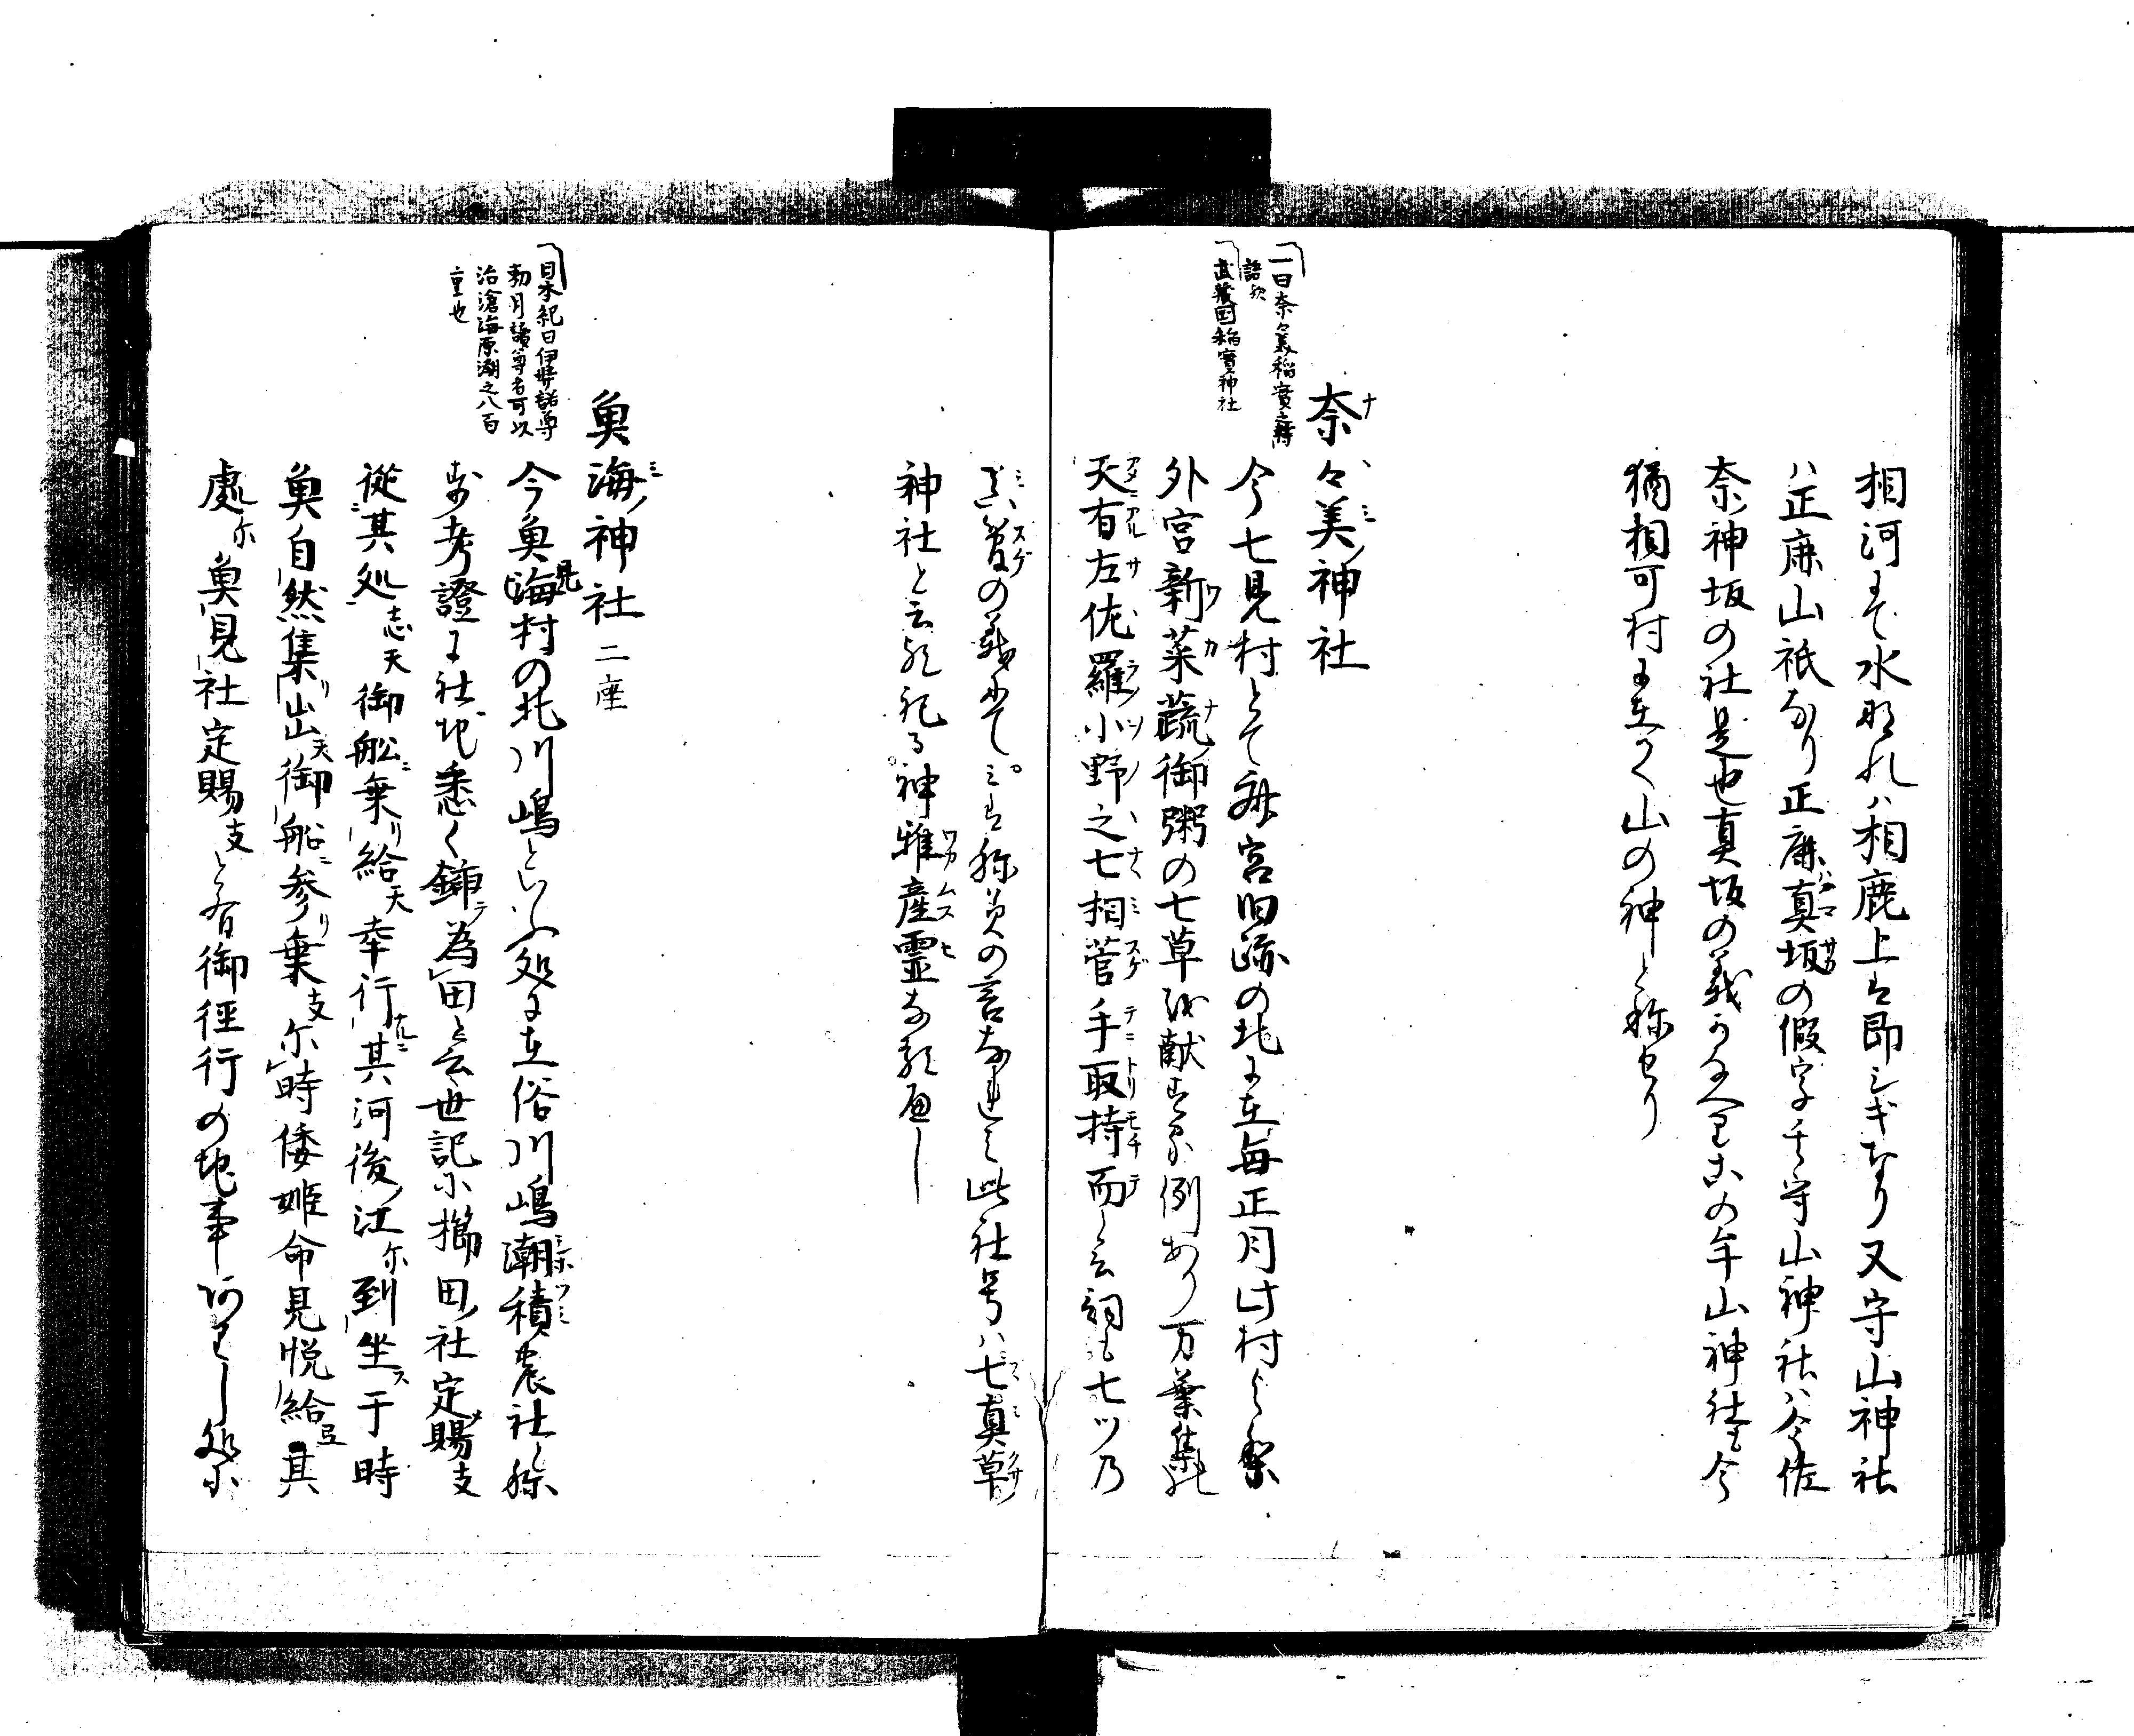 相河にて水なれハ相鹿上ハ即シギなり又守山神社
ハ正廉山祇なり正廉真坂の假字千守山神社ハ今佐
奈神坂の社是也真坂の義 の牟山神社も今
猶相可村に在て山の神と称せり
一曰奈々美稲實之
語欤
武蔵国稲實神社
奈々美ノ神社
今七見村とて 宮旧跡の北に在毎正月此村より
外宮新菜蔬御粥の七草を献する例あり万葉集に
天有左佐羅小野之七相菅手取持而と云詞も七ツ乃
真菅の義にてミは称美の言なれは此社号ハ七真草
神社と云 神稚産霊なるへし
日本紀曰伊弉諾尊
勅月讀尊者可以
治滄海原潮之八百
重也
魚海ノ神社 二座
今魚海見村の北川嶋といふ処に在俗川嶋潮積農社と称
す考證に社地悉く鋤為田と云世記に櫛田社定賜支
從其処志天御舩乗給天幸行其河後江尓到坐于時
魚自然集出天御船参乗支尓時倭姫命見悦給弖其
處尓魚見社定賜支と有御徑行の地事 し処に